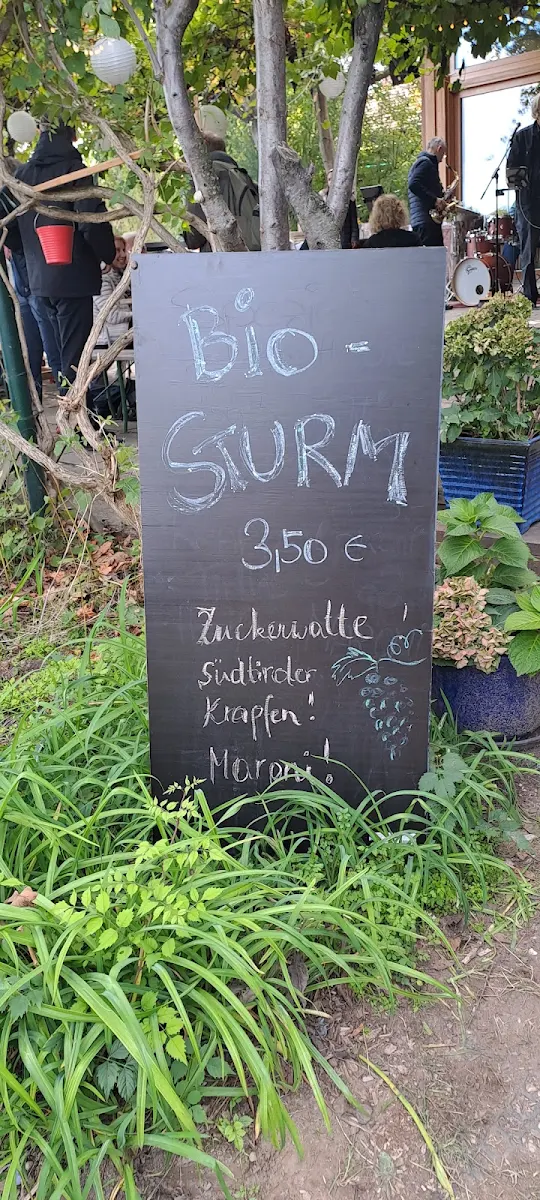 Bio -
STURM
3,50 €
Zuckerwatte !
Südtiroler
Krapfen!
Maroni!